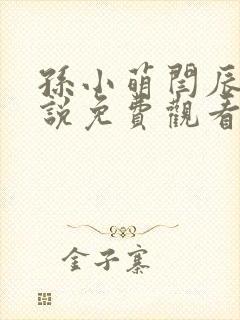 孫小萌閆辰
說免費觀看
金子寨